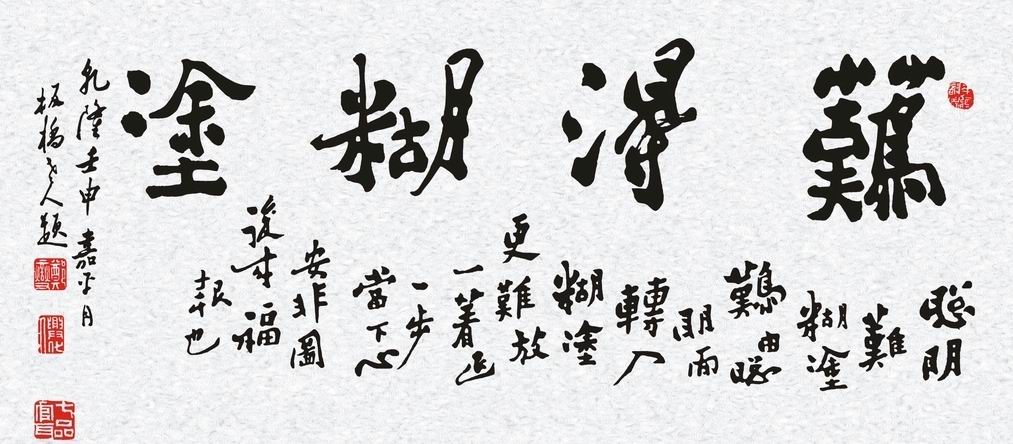 難得糊塗
聰明
難
糊塗
難由聰
明而
轉入
糊塗
更難放
一著退
一步
當下心
安非圖
後來福
報也
乾隆壬申嘉平月
板橋老人題
七品官耳